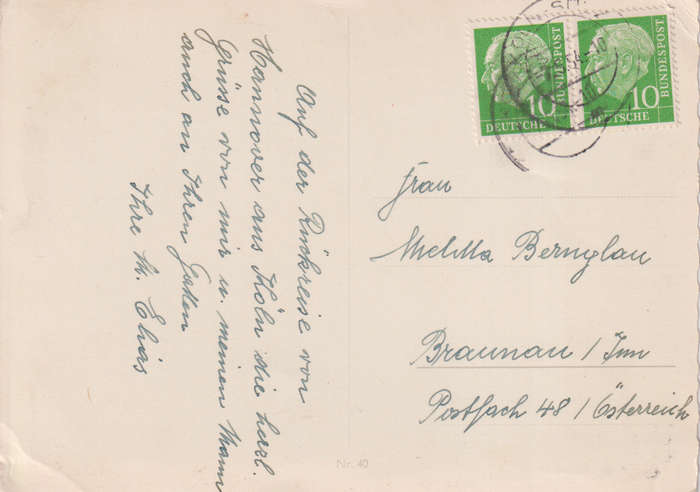 Auf der Rückreise von
Hannover aus Köln die herzl.
Grüsse von mir u. meinem Mann
auch an Ihren Gatten
Ihre M. Elias
BUNDESPOST
10
DEUTSCHE
BUNDESPOST
10
DEUTSCHE
Frau
Melitta Bernglau
Braunau / Inn
Postfach 48 / Österreich
Nr. 40